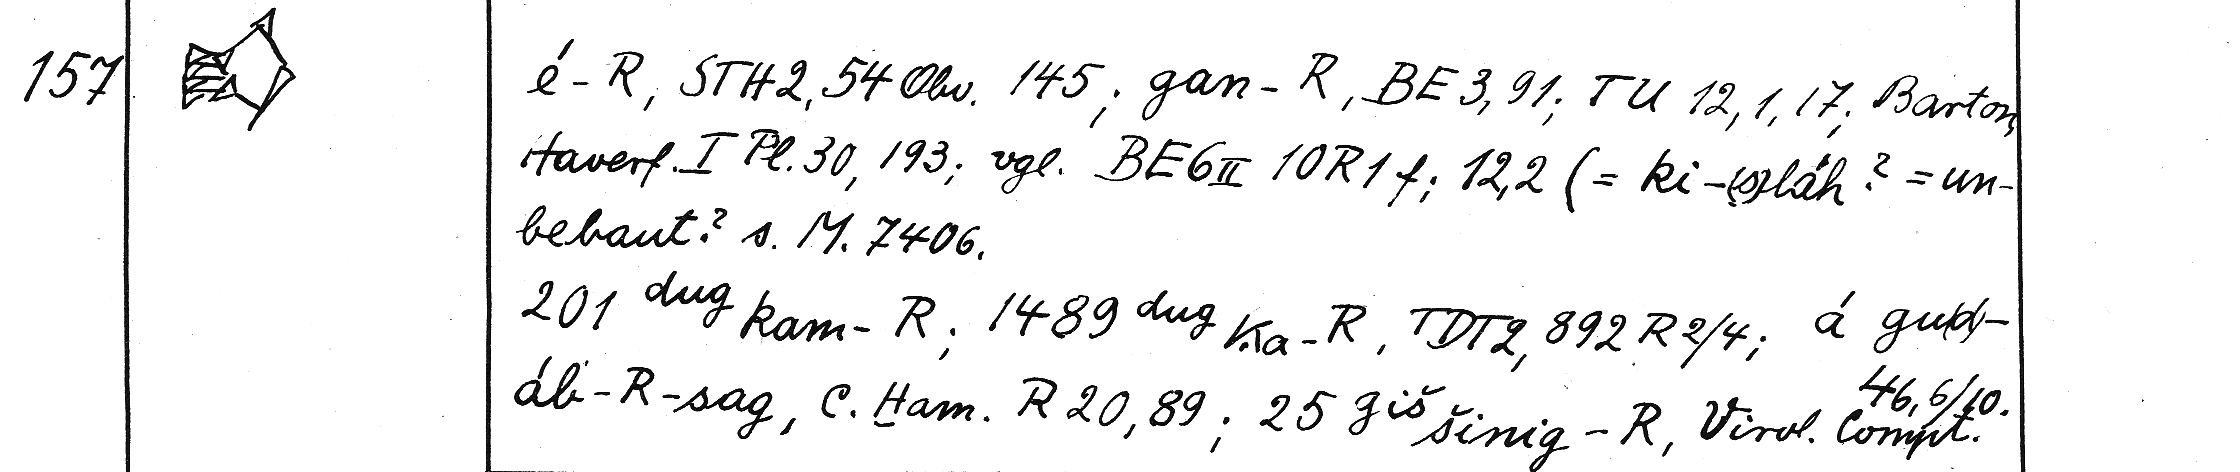 157 é-R, STH 2, 54 Obv. 145; gan-R, BE 3, 91; TU 12, 1, 17; Barton,
Haverf. I Pl. 30, 193; vgl. BE 6 II 10 R 1 f; 12,2 (= ki-(s)láh? = un-
bebaut? s. M. 7406.
201 dug kam-R; 1489 dug Ka-R, TDT 2, 892 R 2/4; á gu(d)-
áb-R-sag, C. Ham. R 20, 89; 25 giš šinig-R, Virol. Compt. 46, 6/10.